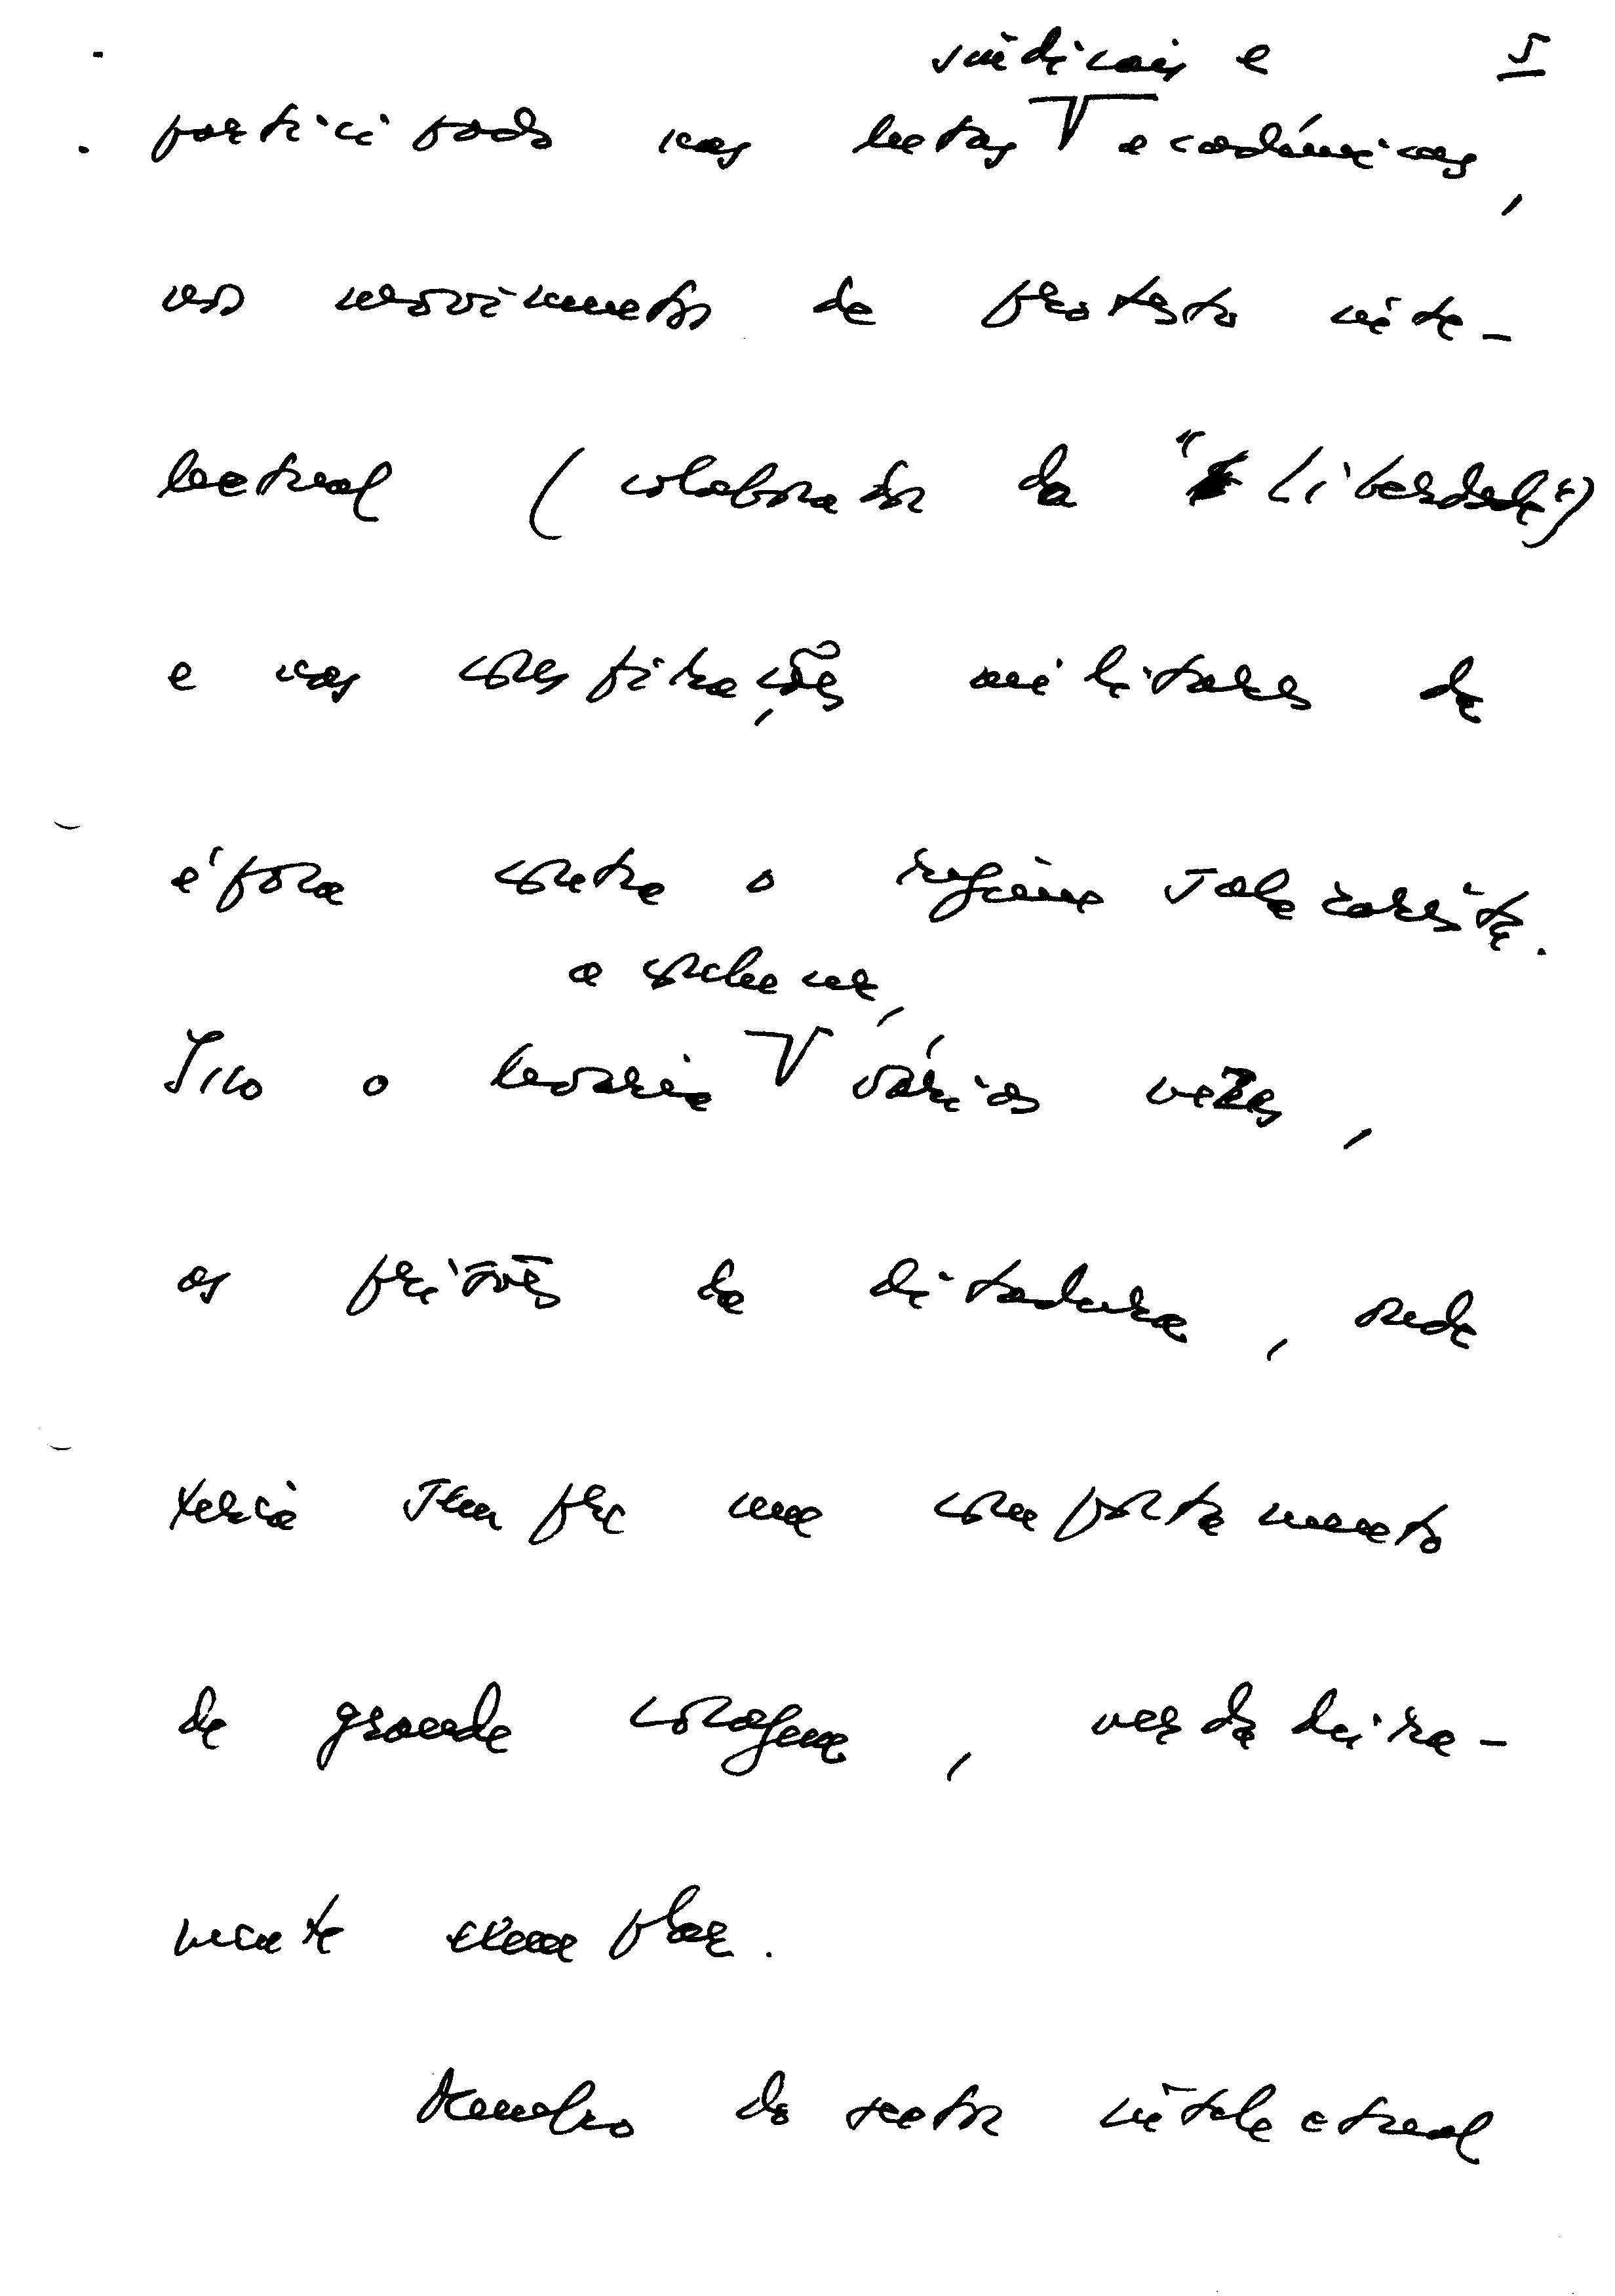 sindicais e 5
participado nas lutas académicas,
nos movimentos de protesto inte-
lectual (colaborador da "Liberdade")
e nas conspirações militares da
época contra o regime salazarista.
a conhecer,
Isso o levaria várias vezes,
as prisões da ditadura, onde
teria sempre um comportamento
de grande coragem, verdadeira-
mente exemplar.
Membro do sector intelectual